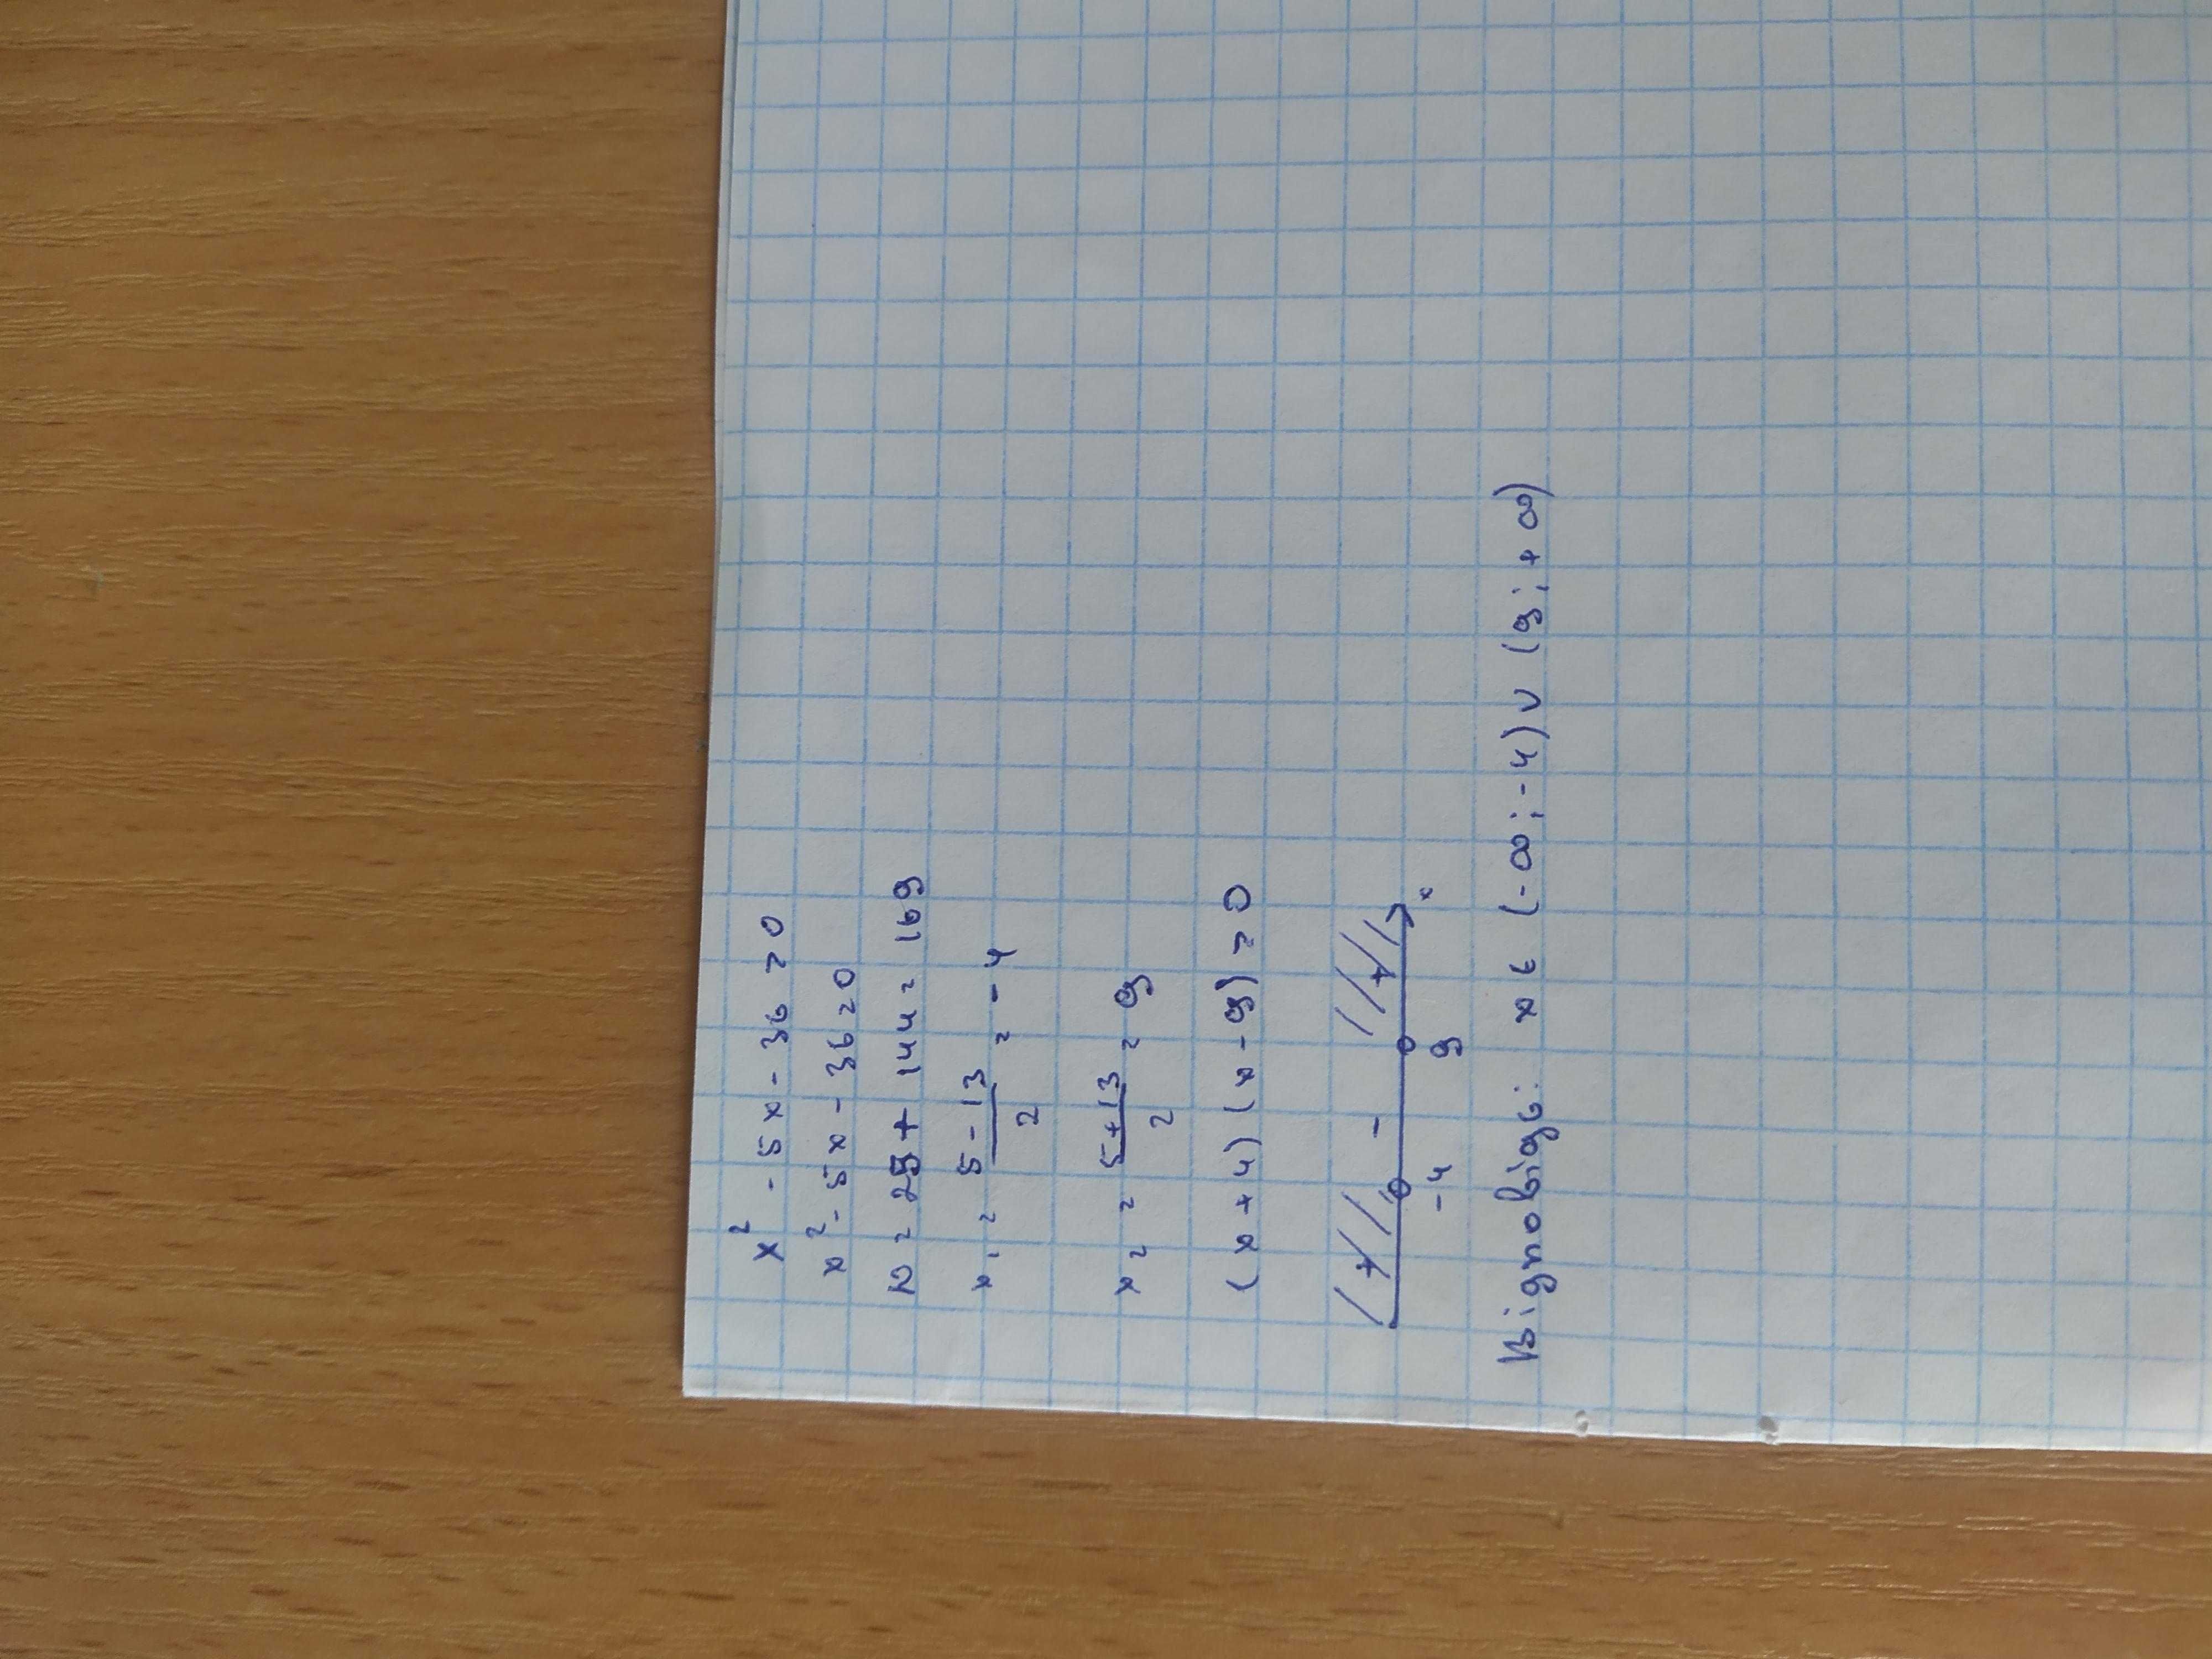 x² - 5x - 36 > 0
x² - 5x - 36 = 0
D = 25 + 144 = 169
x₁ = (5 - 13)/2 = -4
x₂ = (5 + 13)/2 = 9
(x + 4)(x - 9) > 0
+ - + x
-4 9
Відповідь: x ∈ (-∞; -4) ∪ (9; +∞)